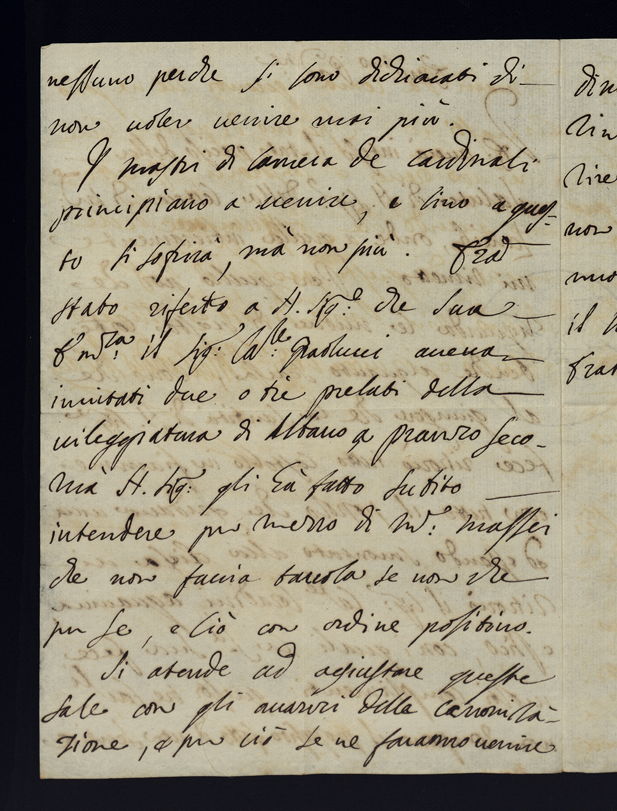 nessuno perche si sono dichiarati di
non voler venire mai più.
I mastri di Camera de Cardinali
principiano a venire, e sino a ques-
to si soffrirà, mà non più. Era
stato riferto a N. Sig.re che Sua
Em.za il Sig: Ca:lle Paolucci aveva
invitati due o tre prelati della
vileggiatura di Albano a pranzo seco-
mà N. Sig.re gli hà fatto subito
intendere per mezzo di M.r Massei
che non faccia tavola se non che
per se, e ciò con ordine positivo.
Si atende ad agiustare queste
sale con gli avanzi della Canoniza-
zione, e per ciò se ne faranno venire
din
lin
lire
non
il